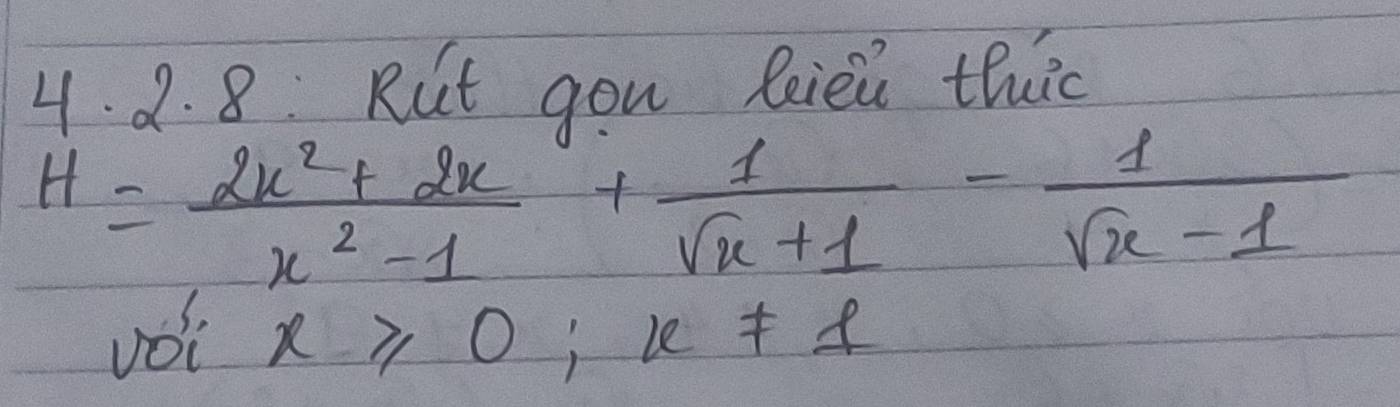 4.2.8: Rút gọn biểu thức
H = \frac{2x^2 + 2x}{x^2 - 1} + \frac{1}{\sqrt{x} + 1} - \frac{1}{\sqrt{x} - 1}
với x ⩾ 0 ; x ≠ 1